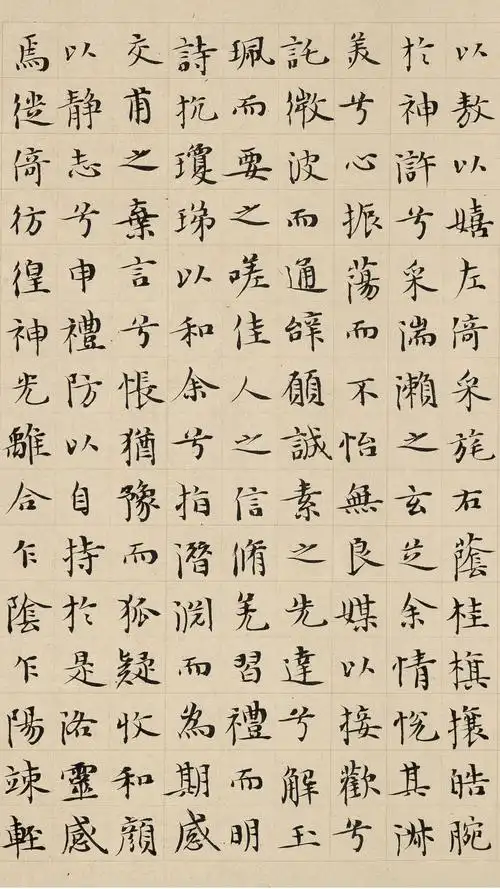 以敖以嬉左倚采旄右蔭桂旗攘皓腕
於神滸兮采湍瀨之玄芝余情悅其淑
美兮心振蕩而不怡無良媒以接歡兮
託微波而通辭願誠素之先達兮解玉
珮而要之嗟佳人之信脩羌習禮而明
詩抗瓊珶以和余兮指潛淵而為期感
交甫之棄言兮悵猶豫而狐疑收和顏
以静志兮申禮防以自持於是洛靈感
焉徙倚彷徨神光離合乍陰乍陽竦輕